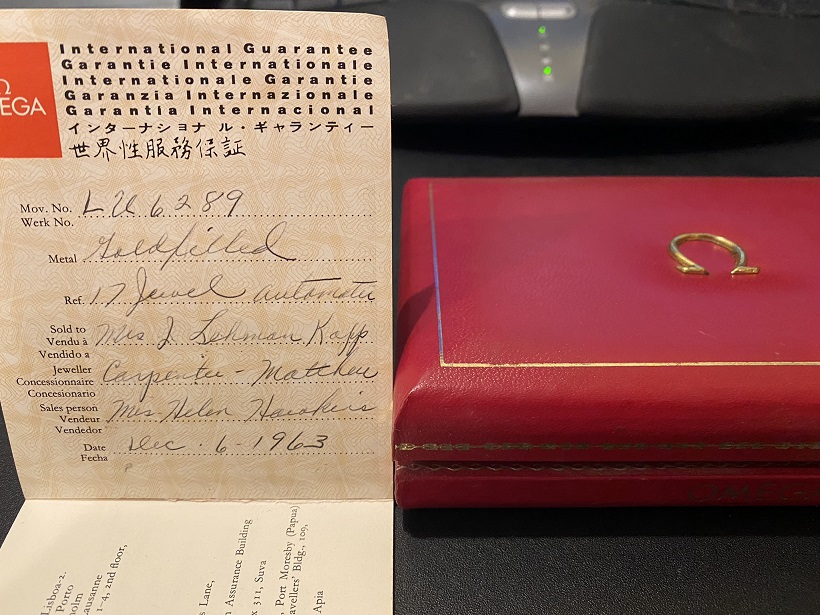 Ω
EGA
International Guarantee
Garantie Internationale
Internationale Garantie
Garanzia Internazionale
Garantia Internacional
インターナショナル・ギャランティー
世界性服務保証
Mov. No. LU6289
Werk No.
Metal Goldfilled
Ref. 17 Jewel automatic
Sold to Mrs J Lehman Kapp
Vendu à
Vendido a
Jeweller Carpenter - Matthew
Concessionnaire
Concesionario
Sales person Mrs Helen
Vendeur
Vendedor
Date Dec. 6-1963
Fecha
Lisboa-2.
Porto
holm
ausanne
1-4, 2nd floor,
s Lane,
n Assurance Building
x 311, Suva
, Port Moresby (Papua)
avellers' Bldg., 109,
Apia